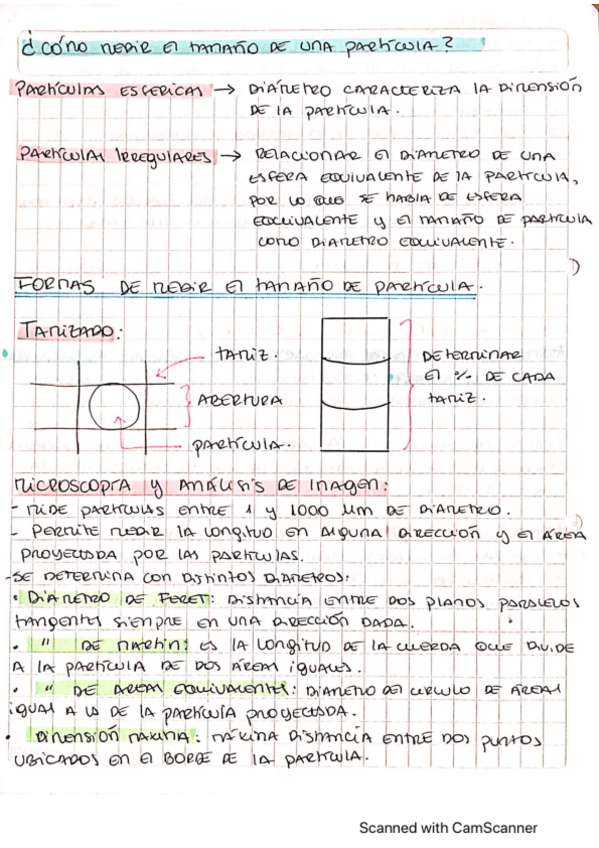 ¿Cómo medir el tamaño de una partícula?
Partículas esféricas → Diámetro caracteriza la dimensión
de la partícula.
Partículas irregulares → Relacionar el diámetro de una
esfera equivalente de la partícula,
por lo que se habla de esfera
equivalente y el tamaño de partícula
como diámetro equivalente.
Formas de medir el tamaño de partícula.
Tamizado:
tamiz.
abertura
partícula.
Determinar
el % de cada
tamiz.
Microscopía y análisis de imagen:
- Mide partículas entre 1 y 1000 µm de diámetro.
- Permite medir la longitud en alguna dirección y el área
proyectada por las partículas.
- Se determina con distintos diámetros:
• Diámetro de Feret: Distancia entre dos planos paralelos
tangentes siempre en una dirección dada.
• " de Martin: es la longitud de la cuerda que divide
a la partícula de dos áreas iguales.
• " de áreas equivalentes: diámetro del círculo de áreas
igual a la de la partícula proyectada.
• Dimensión máxima: máxima distancia entre dos puntos
ubicados en el borde de la partícula.
Scanned with CamScanner